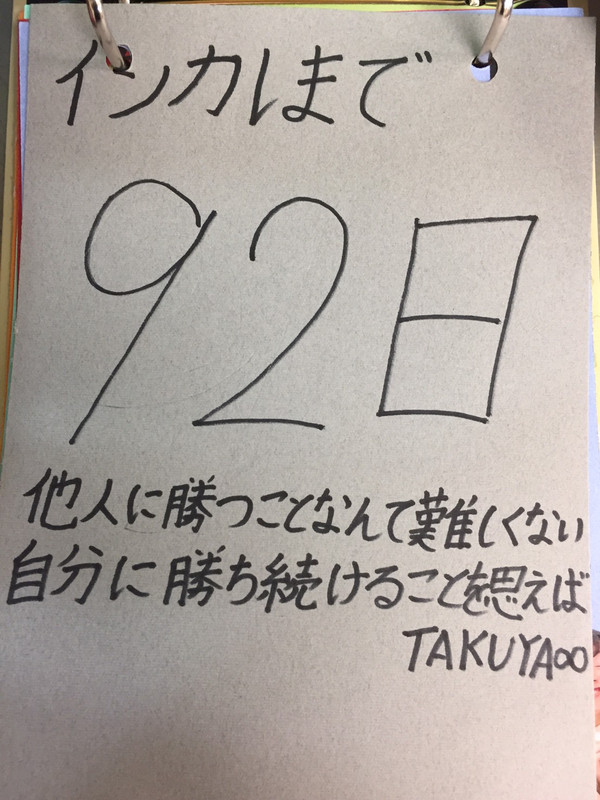 インカレまで
92日
他人に勝つことなんて難しくない
自分に勝ち続けることを思えば
TAKUYA∞